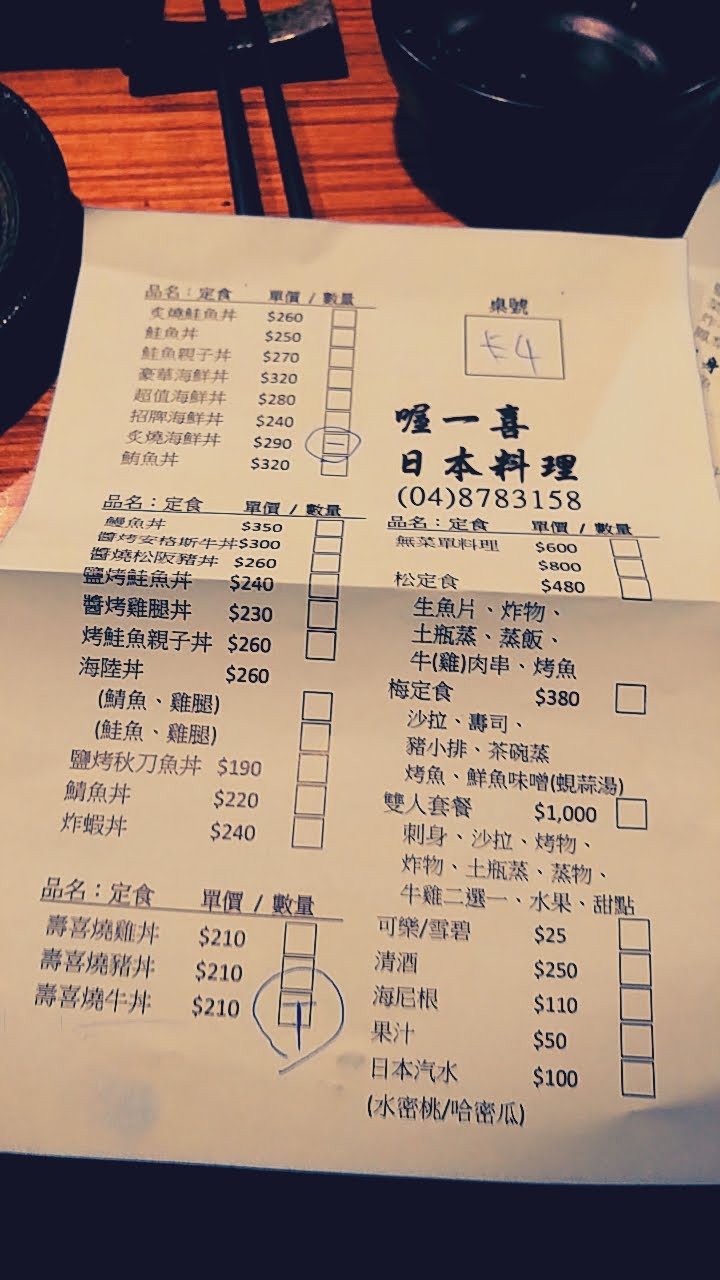 品名：定食 單價 / 數量
炙燒鮭魚丼 $260
鮭魚丼 $250
鮭魚親子丼 $270
豪華海鮮丼 $320
超值海鮮丼 $280
招牌海鮮丼 $240
炙燒海鮮丼 $290 一
鮪魚丼 $320
品名：定食 單價 / 數量
鰻魚丼 $350
醬烤安格斯牛丼 $300
醬燒松阪豬丼 $260
鹽烤鮭魚丼 $240
醬烤雞腿丼 $230
烤鮭魚親子丼 $260
海陸丼 $260
(鯖魚、雞腿)
(鮭魚、雞腿)
鹽烤秋刀魚丼 $190
鯖魚丼 $220
炸蝦丼 $240
品名：定食 單價 / 數量
壽喜燒雞丼 $210
壽喜燒豬丼 $210
壽喜燒牛丼 $210
桌號
卡4
喔一喜
日本料理
(04)8783158
品名：定食 單價 / 數量
無菜單料理 $600
$800
松定食 $480
生魚片、炸物、
土瓶蒸、蒸飯、
牛(雞)肉串、烤魚
梅定食 $380
沙拉、壽司、
豬小排、茶碗蒸
烤魚、鮮魚味噌(蜆蒜湯)
雙人套餐 $1,000
刺身、沙拉、烤物、
炸物、土瓶蒸、蒸物、
牛雞二選一、水果、甜點
可樂/雪碧 $25
清酒 $250
海尼根 $110
果汁 $50
日本汽水 $100
(水密桃/哈密瓜)